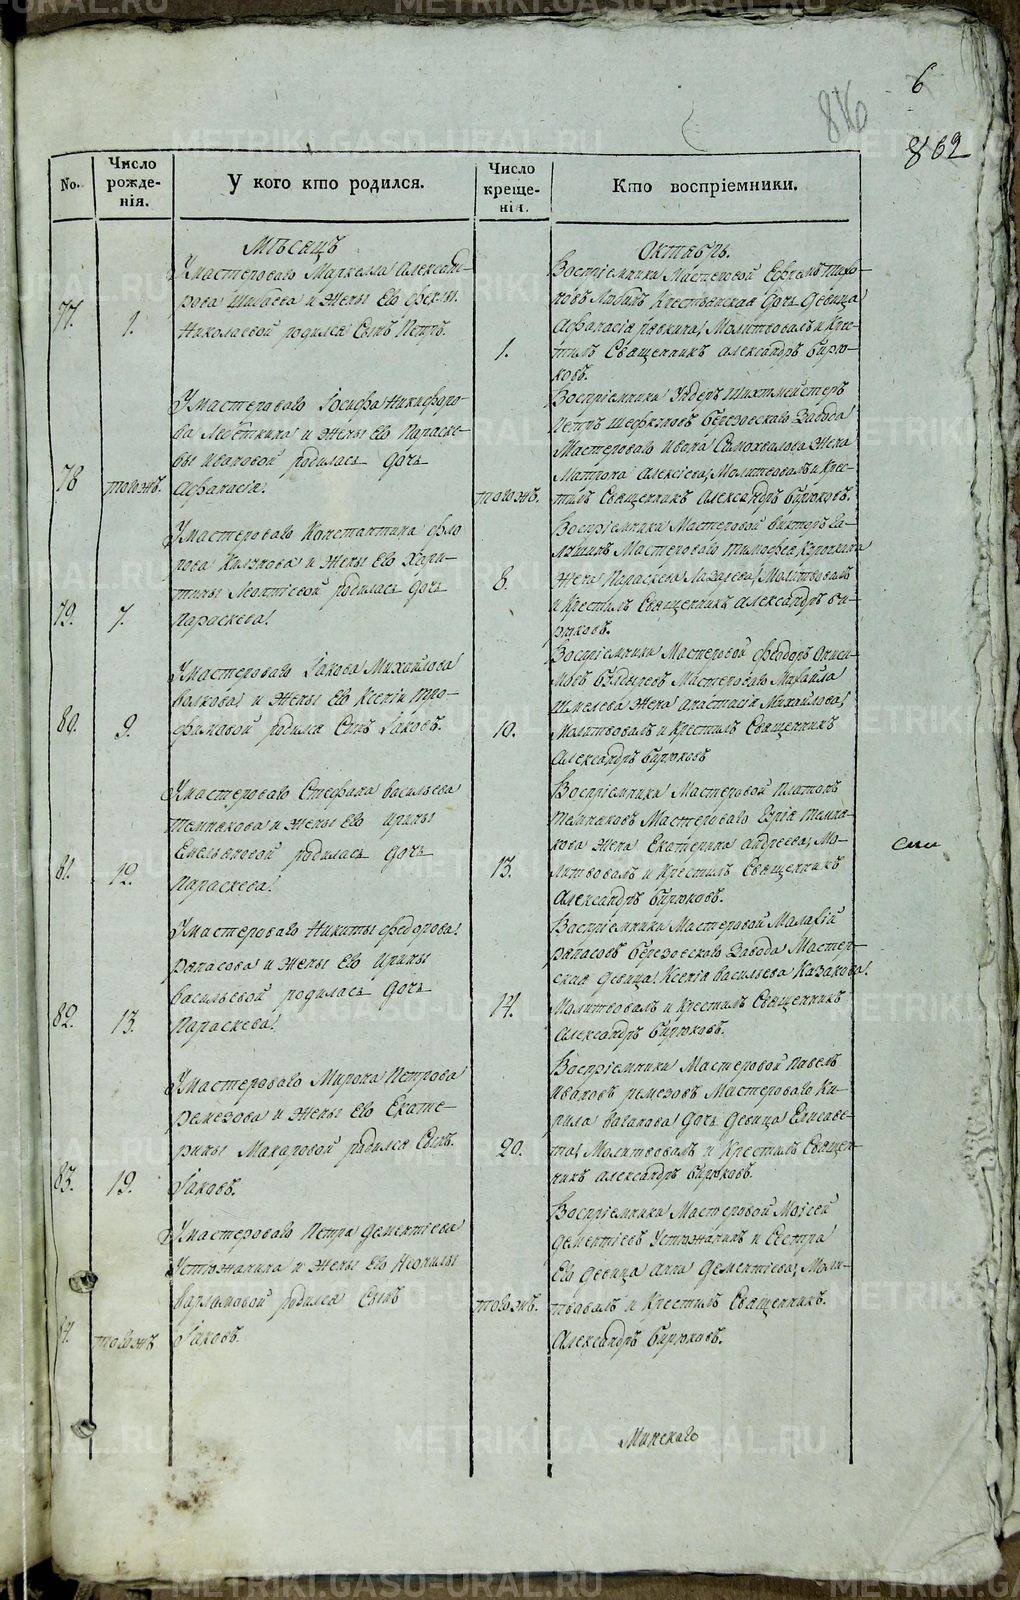 6
8
862
No.
Число рожде-нія.
У кого кто родился.
Число креще-нія.
Кто воспріемники.
Мѣсяцъ
Октябрь.
77.
1.
У мастероваго Маркелла Александ-
рова Шилаева и жены его Ѳеклы
Николаевой родился сынъ Петръ.
1.
Воспріемники Мастеровой Ефремъ Тихо-
новъ крестьянская дочь девица
Афанасія молитвовалъ и крес-
тилъ Священникъ Александръ Бирю-
ковъ.
78
тогожъ.
У мастероваго Іосифа Никифоро-
ва и жены его Параске-
вы Ивановой родилась дочь
Афанасія.
тогожъ.
Воспріемники Ундеръ Шихтмейстеръ
Петръ Березовскаго Завода
Мастероваго Ивана Самохвалова жена
Матрона Алексіева, Молитвовалъ и крес-
тилъ Священникъ Александръ Бирюковъ.
79.
7.
У мастероваго Константина Фло
рова и жены его Хари-
тины Леонтіевой родилась дочь
Параскева.
8.
Воспріемники Мастеровой Викторъ
Мастероваго Тимофея
жена Параскева Лазарева, Молитвовалъ
и крестилъ Священникъ Александръ Би-
рюковъ.
80.
9.
У мастероваго Іакова Михайлова
Волкова и жены его Ксеніи Тро-
фимовой родился сынъ Іаковъ.
10.
Воспріемники Мастеровой ФеодоръОниси-
мовъ Мастероваго Михайла
Шмелева жена Анастасія Михайлова,
Молитвовалъ и крестилъ Священникъ
Александръ Бирюковъ
81.
12.
У мастероваго Стефана Васильева
Темнякова и жены его Ирины
Емельяновой родилась дочь
Параскева.
13.
Воспріемники Мастеровой Платонъ
Темняковъ Мастероваго Темня-
кова жена Екатерина Андреева, Мо-
литвовалъ и крестилъ Священникъ
Александръ Бирюковъ.
82.
13.
У мастероваго Никиты Федорова
Ряпасова и жены его Ирины
Васильевой родилась дочь
Параскева.
14.
Воспріемники Мастеровой Малахій
Ряпасовъ Березовскаго Завода Мастер-
ская девица Ксенія Васильева Казакова.
Молитвовалъ и крестилъ Священникъ
Александръ Бирюковъ.
83.
19.
У мастероваго Мирона Петрова
Ремезова и жены его Екате-
рины Макаровой родился сынъ
Іаковъ.
20.
Воспріемники Мастеровой Павелъ
Ивановъ Ремезовъ Мастероваго Ки-
рила Ваганова дочь девица Елисаве-
та, Молитвовалъ и крестилъ Священ-
никъ Александръ Бирюковъ.
84.
тогожъ
У мастероваго Петра Дементіева
Устюжанина и жены его Неонилы
Варламовой родился сынъ
Іаковъ.
тогожъ.
Воспріемники Мастеровой Моисей
Дементіевъ Устюжанинъ и сестра
его девица Анна Дементіева, Моли-
твовалъ и крестилъ Священникъ.
Александръ Бирюковъ.
Минскаго
METRIKI.GASO-URAL.RU